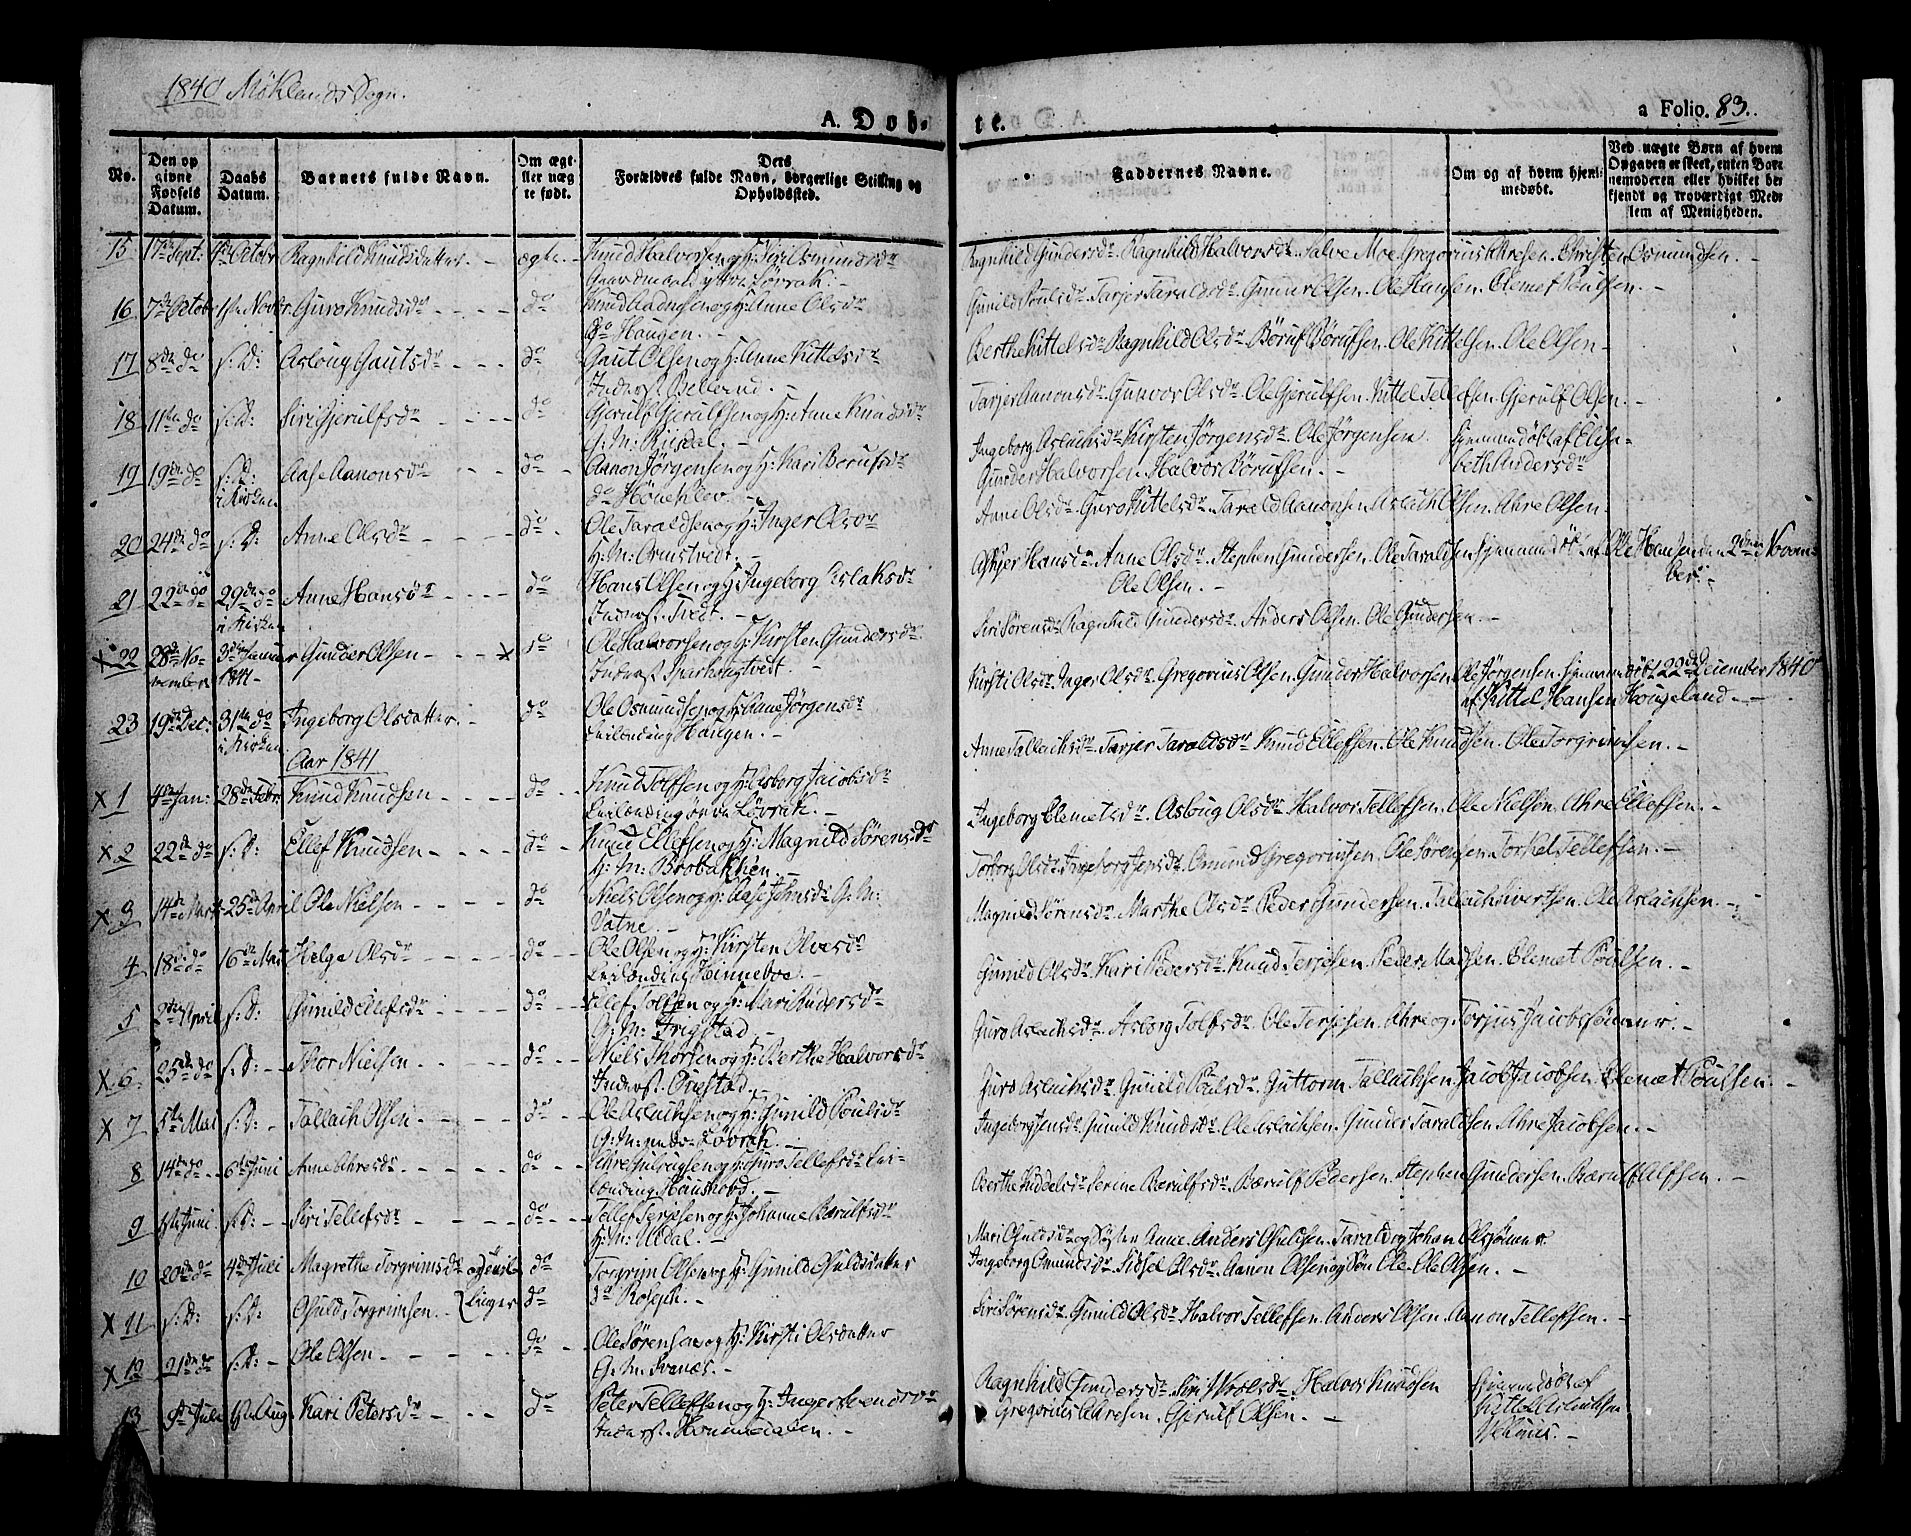 1840 Möklands Sogn.
A. Dob-
te.
a Folio. 83.
No.
Den op
givne
Fødsels
Datum.
Daabs
Datum.
Barnets fulde Navn.
Om ægt
ller næg
te født.
Ders
Forældres fulde Navn, borgerlige Stilling og
Opholdssted.
Faddernes Navne.
Om og af hvem hjem
medøbt.
Ved uægte Børn af hvem
Opgaven er skeet, enten Bare
nemoderen eller hvilket be
kjendt og troværdigt Med
lem af Menigheden.
15 17de Sept: 4de Octobr Ragnhild Knudsdatter. - ægte. - Knud Halvorsen og H: Siri Osmundsdr
Gaardmand yttre Lövrak. -
Ragnhild Gundersdr. Ragnhild Halvorsdr. Salve Moe. Gregorius Ahresen. Christen Osmundsen. -
16 7de Octobr 1ste Novbr Guro Knudsdr - - - - do Knud Aadnesen og H: Anne Olsdr
do Haugen. -
Gunild Poulsdr. Tarjer Taraldsdr. Gunder Olsen. Ole Hansen. Clemet Poulsen. -
17 8de do s. D: Aslaug Gautsdr - - - do Gaut Olsen og H: Anne Kittelsdr
Inderst Bellend. -
Berthe Kittelsdr Ragnhild Olsdr. Börulf Börulfsen. Ole Kittelsen. Ole Olsen -
18 11te do s. D: Siri Gjerulfsdr - - - do Gjerulf Gjerulfsen og H: Anne Knudsdr
G: M: Risdal. -
Tarjer Aanonsdr. Gunvor Olsdr. Ole Gjerulfsen. Kittel Tellefsen. Gjerulf Olsen. -
19 19de do s: D:
i Kirken Aase Aanonsdr - - - do - Aanon Jörgensen og H: Kari Berulfsdr
do Höneklev. -
Ingeborg Aslachsdr Kirsten Jörgensdr. Ole Jörgensen.
Gunder Halvorsen. Halvor Börulfsen. -
hjemmedöbt af Elisa-
beth Andersdr
20 24de do s. D: Anne Olsdr - - - do - Ole Taraldsen og H: Inger Olsdr
H: M: Ormstvedt. -
Anne Olsdr. Guro Kittelsdr. Tarald Aanonsen. Aslach Olsen. Ahre Olsen -
21 22de do 29de do
i Kirken Anne Hansdr - - - - do Hans Olsen og H: Ingeborg Aslaksdr
Inderst Tvedt. -
Anne Olsdr. Stephen Gundersen. Ole Taraldsen
Ole Olsen. -
hjemmedöbt af Ole Hansen den 2den Novem-
ber -
x 22 28de No-
vember 3die Januar
1841 - Gunder Olsen - - - x do Ole Halvorsen og H: Kirsten Gundersdr
Siri Sörensdr Ragnhild Gundersdr. Anders Olsen. Ole Gundersen. -
23 19de Dec: 31te do
i Kirken Ingeborg Olsdatter. - do Ole Osmundsen og H: Anne Jörgensdr
Haugen. -
Kirsti Olsdr. Inger Olsdr. Gregorius Olsen. Gunder Halvorsen. Ole Jörgensen. hjemmedöbt 22de December 1840
af Kittel Hansen Hougeland. -
Aar 1841
x 1 4de Jan: 28de Febr: Knud Knudsen - - - - do - - Knud Tolfsen og H: Asborg Jacobsdr
Lövrak. -
Anne Tallachsdr. Tarjer Taraldsdr Knud Ellefsen. Ole Knudsen. Ole Torgrimsen. -
x 2 22de do s: D: Ellef Knudsen - - - - do - Knud Ellefsen og H: Magnild Sörensdr
H: M: Brobakken. -
Ingeborg Clemetsdr. Aslaug Olsdr. Halvor Tellefsen. Ole Nielsen. Ahre Ellefsen. -
x 3 14de Mart 25de April Ole Nielsen - - - - do Niels Olsen og H: Aase Jensdr G: M:
Vatne. -
Torborg Olsdr. Ingeborg Jensdr. Omund Gregoriusen. Ole Sörensen. Torkel Tellefsen. -
4 18de do 16de Mai Helge Olsdr - - - - do - Ole Olsen og H: Kirsten Olvesdr
Hinneboe. -
Magnild Sörensdr. Marthe Olsdr Peder Gundersen. Tallach Sivertsen. Ole Aslachsen. -
5 2den April s: D: Gunild Ellefsdr - - - - do - Ellef Tolfsen og H: Mari Andersdr
G: M: Frigstad. -
Gunild Olsdr. Kari Pedersdr. Knud Terjesen. Peder Madsen. Clemet Poulsen. -
x 6. 25de do s. D: - Thor Nielsen - - - do - - Niels Thorsen og H: Berthe Halvorsdr
Inderst
Guro Aslachsdr. Asborg Tolfsdr. Ole Terjesen. Ahre og Torjus Jacobssönner. -
x 7 5te Mai s. D: - Tallach Olsen - - - do - - Ole Aslachsen og H: Gunild Poulsdr
G: M: Lövrak. -
Guro Aslachsdr. Gunild Poulsdr. Guttorm Tallachsen. Jacob Jacobsen. Clemet Poulsen. -
8 14de do - 6te Juni Anne Ahresdr. - - - - do - - Ahre Gulaugsen og H: Guro Tellefsdr
Haushobd. -
Ingeborg Jensdr Gunild Knudsdr. Ole Aslachsen. Gunder Taraldsen. Ahre Jacobsen. -
9 1ste Juni s: D: - Siri Tellefsdr - - - - do - - Tellef Terjesen og H: Johanne Bærulfsdr
H: M: Uldal. -
Berthe Kiddelsdr Serine Berulfsdr. Bærulf Pedersen. Stephen Gundersen. Bærulf Alfsen. -
10 20de do 4de Juli Magrethe Torgrimsdr og
linger do Torgrim Olsen og H: Gunild Osuldsdatter
do Roseph. -
Mari Osuldsdr og Söster Anne. Anders Osuldsen. Tarald og Johan Olssönner.
x 11 s: D: s: D: Osuld Torgrimsen. - do
Ingeborg Omundsdr. Sidsel Olsdr. Aanon Olsen og Sön Ole. Ole Olsen. -
x 12 21de do s. D: - Ole Olsen - - - - do - Ole Sörensen og H: Kirsti Olsdatter
G: M: Svenæs. -
Siri Sörensdr. Gunild Olsdr Halvor Tellefsen. Anders Olsen. Aanon Tellefsen. -
13 9de Juli 1ste Aug: Kari Petersdr - - - do - Peter Tellefsen og H: Inger Svendsdr
Inderst Hommedalen. -
Ragnhild Gundersdr. Siri Nielsdr Halvor Knudsen
Gregorius Ahresen. Gjerulf Olsen. -
hjemmedöbt af
Kittel Aslachsen